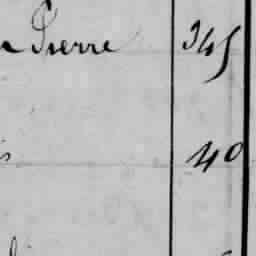 Pierre 345
40